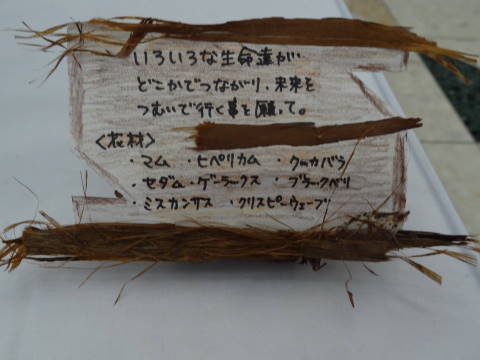 いろいろな生命達が
どこかでつながり、未来を
つむいで行く事を願って。
<花材>
・マム ・ヒペリカム ・クッカバラ
・セダム ・ゲーラックス ・ブラックベリ
・ミスカンサス ・クリスピーウェーブ